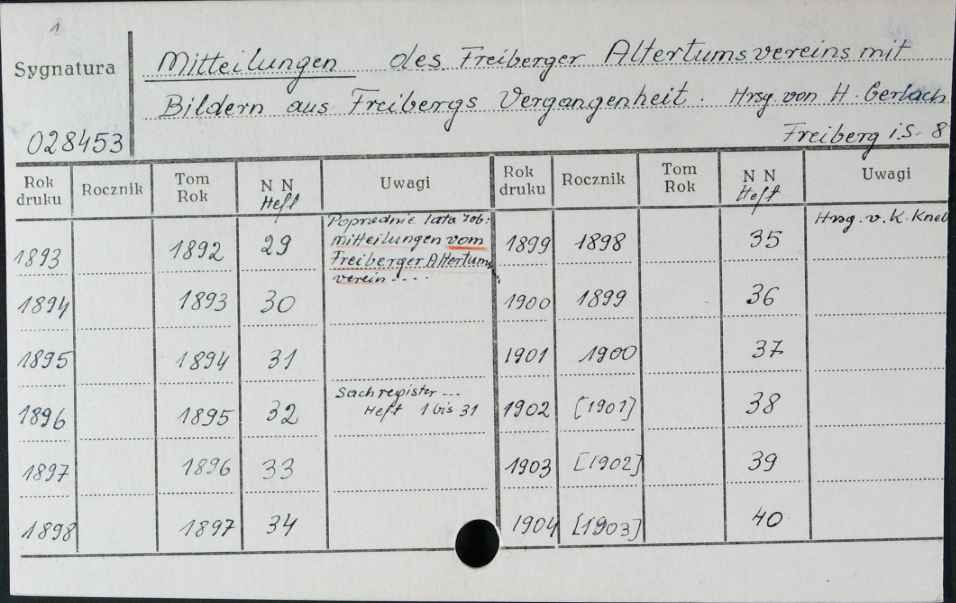 1
Sygnatura
Mitteilungen des Freiberger Altertumsvereins mit
Bildern aus Freibergs Vergangenheit. Hrsg. von H. Gerlach
028453
Freiberg i.S. 8
Rok druku Rocznik Tom Rok N N Heft Uwagi Rok druku Rocznik Tom Rok N N Heft Uwagi
1893 1892 29 Poprzednie lata zob: 1899 1898 35 Hrsg. v. K. Kneb
Mitteilungen vom
Freiberger Altertums
verein ....
1894 1893 30 1900 1899 36
1895 1894 31 1901 1900 37
1896 1895 32 Sachregister ... 1902 [1901] 38
Heft 1 bis 31
1897 1896 33 1903 [1902] 39
1898 1897 34 1904 [1903] 40